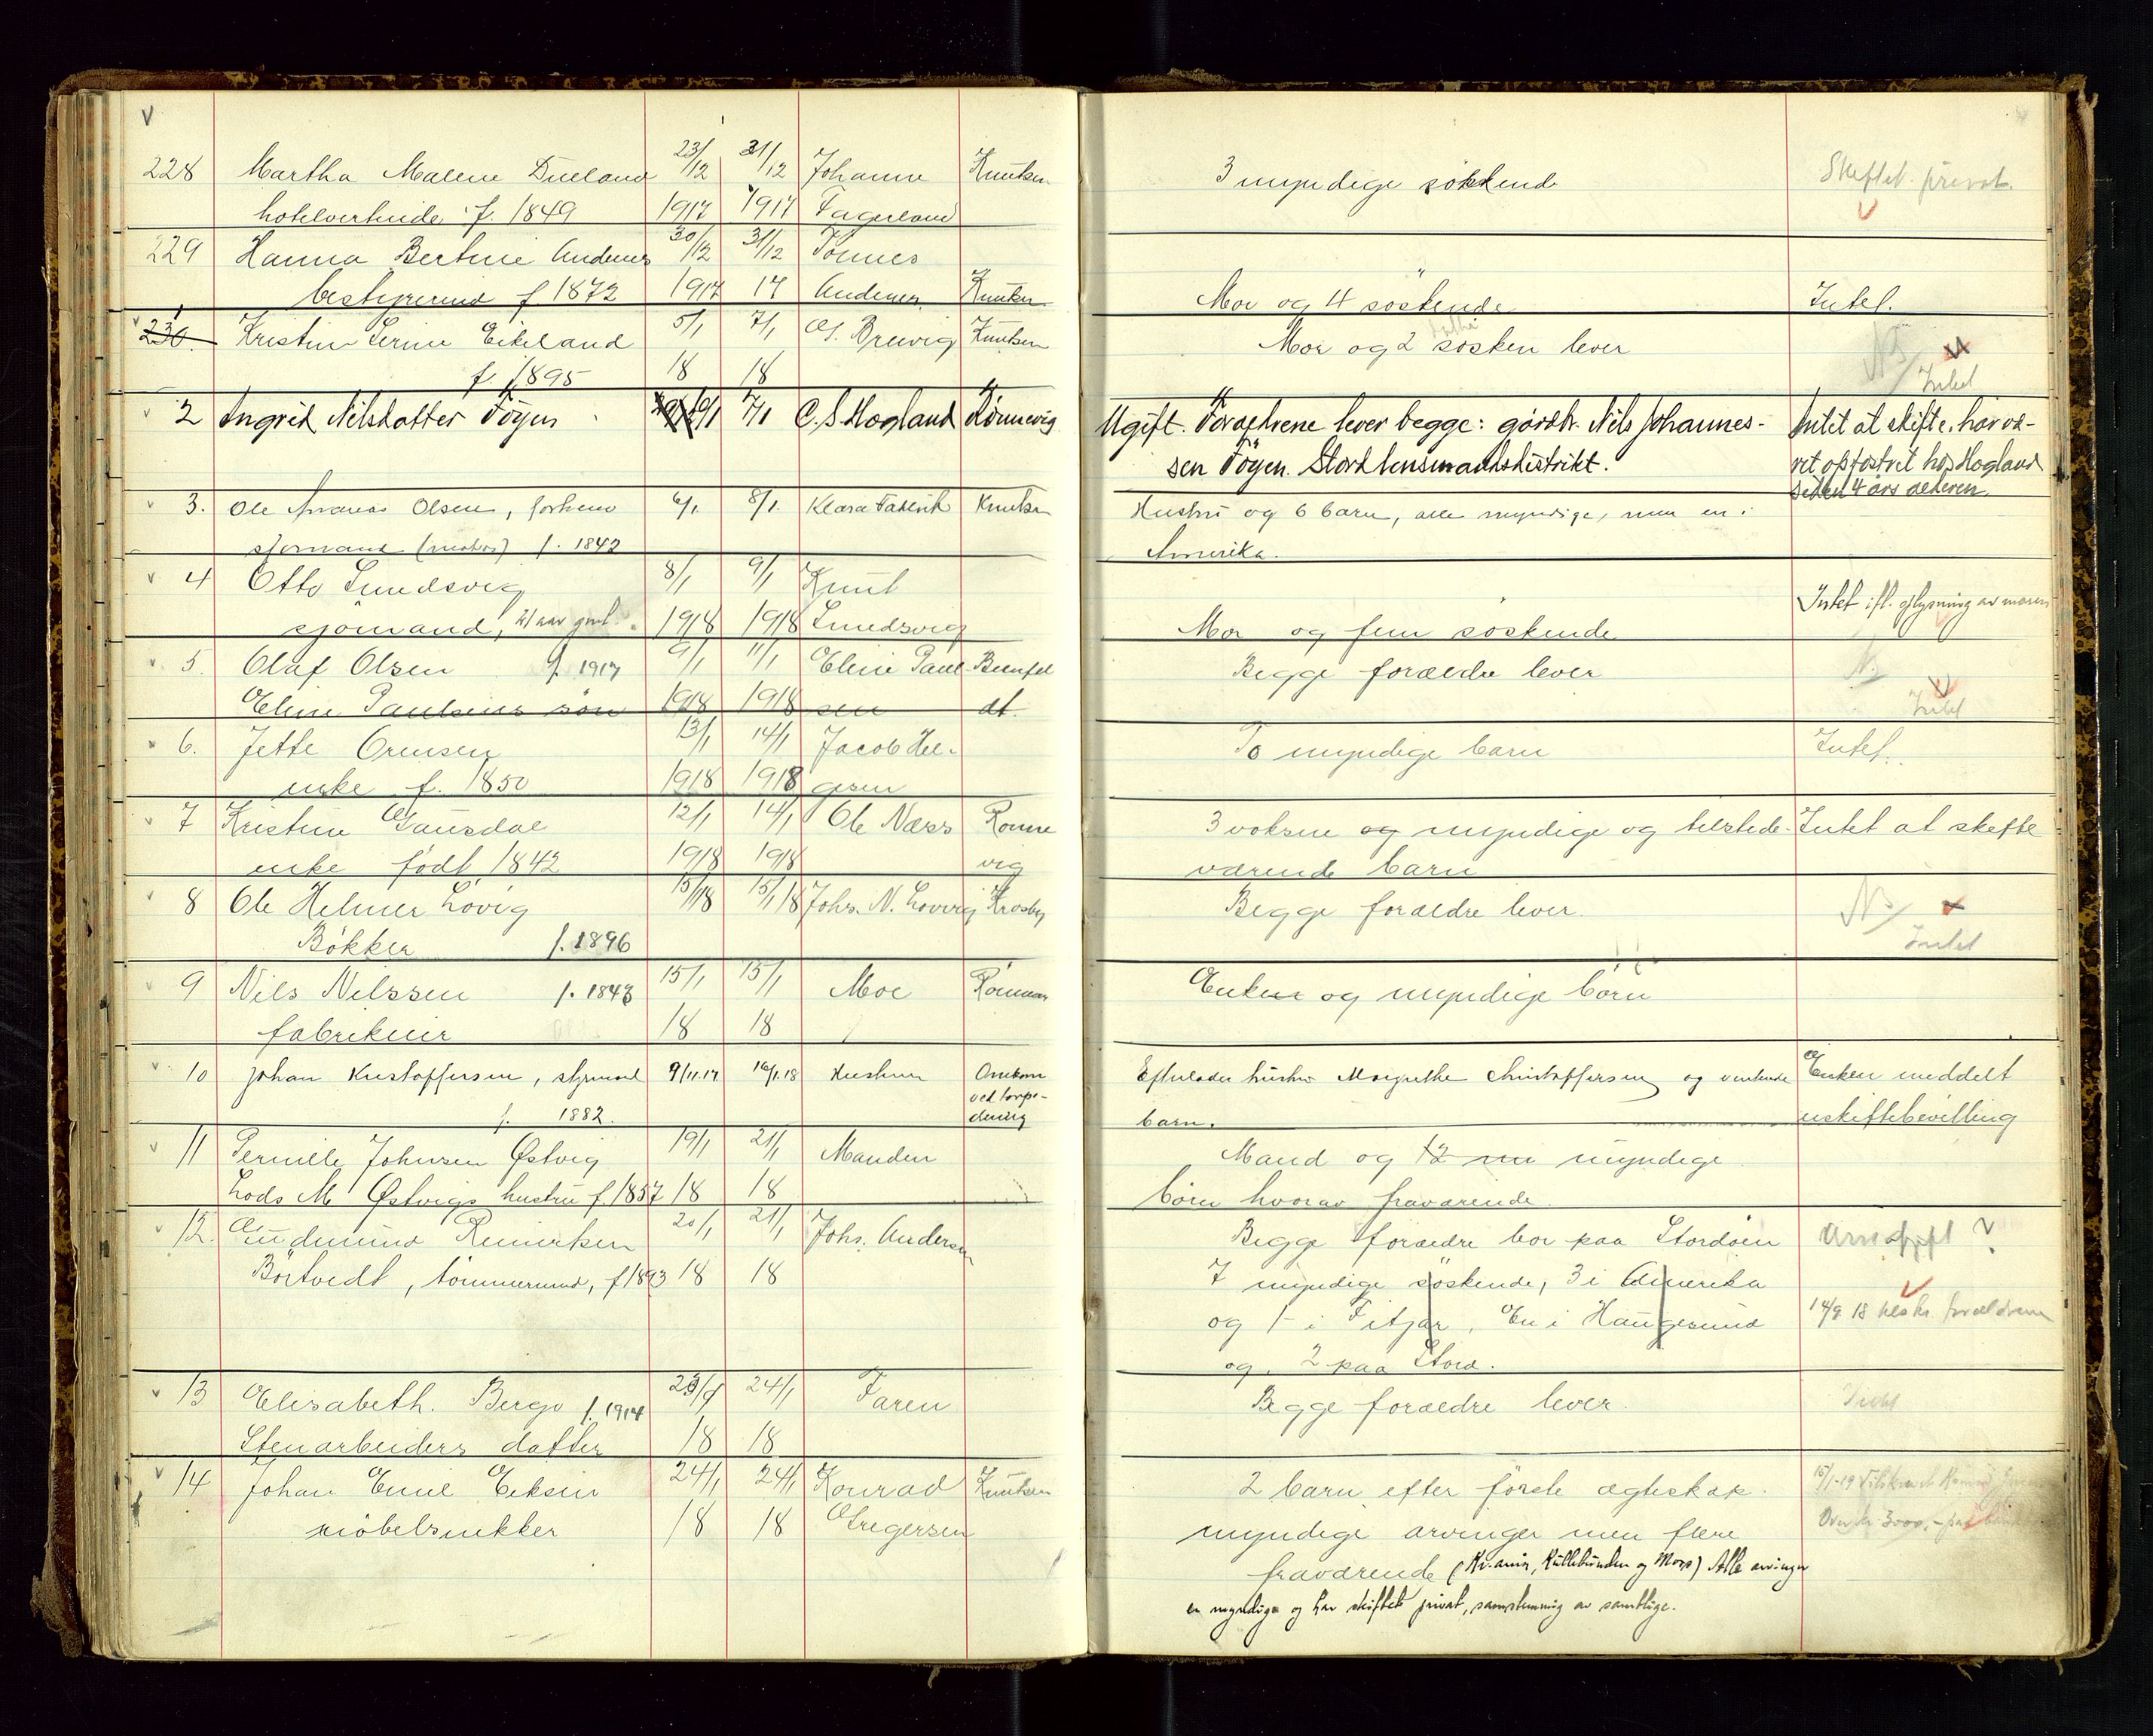 228 Martha Malene Dueland 23/12 31/12 Johanne Knutsen 3 myndige søskend Skiftet privat.
hotelvertinde f. 1849 1917 1917 Fagerland
229 Hanna Bertine Andenes 30/12 31/12 Tønnes
bestyrerind f 1872 1917 17 Andenes Knutsen Mor og 4 søskende Intet.
230 1 Kristine Serine Eikeland 5/1 7/1 Brevig Knutsen Mor og 2 søsken lever
f. 1895 18 18 Intet
2 Ingrid Nilsdatter Tøyen 6/1 7/1 C. S. Hogland Rønnevig Ugift. Forældrene lever begge: gårdbr. Nils Johannes- Intet at skifte, har væ-
sen Tøyen. Stord lensmandsdistrikt. ret opfostret hos Hogland
siden 4 års alderen.
3. Ole Andreas Olsen, forhenv 6/1 8/1. Klara Knutsen Hustru og 6 barn, alle myndige, men en i
sjømand f. 1842 Amerika.
4 Otto Smedsvig 8/1 9/1 Knut
sjømand, 21 aar gml. 1918 1918 Smedsvig Mor og fem søskende Intet ifl. oplysning av moren
5. Olaf Olsen f. 1917 9/1 11/1 Eline Paul- Bernfel Begge forældre lever
Eline Paulsens søn 1918 1918 sen dt. Intet
6. Jette Orensen 13/1 14/1 Jacob Hel- To myndige barn Intet.
enke f. 1850 1918 1918 gesen
7 Kristine Gausdal 12/1 14/1 Ole Næss Rønne 3 voksne og myndige og tilstede- Intet at skifte
enke født 1842 1918 1918 vig værende barn
8 Ole Helmer Lovig 15/1 18 15/1 18 Johs. N. Lovvig Krosby Begge forældre lever.
Bøkker f. 1896 Intet
9 Nils Nilssen f. 1843 15/1 15/1 Moe Enken og myndige børn
fabrikeier 18 18
10 Johan Kristoffersen, styrmand 9/11.17 16/1.18 Hustruen Omkom Efterlader hustru Margrethe Christoffersen og ventende Enken meddelt
f. 1882. ved torpe- barn. uskiftebevilling
dering
11 Pernille Johnsen Østvig 19/1 21/1 Manden Mand og 12 myndige
Lods M Østvigs hustru f. 1857 18 18 børn hvorav fraværende.
12. Gudmund Reinertsen 20/1 21/1 Johs. Andersen Begge forældre bor paa Stordøen
Børtvedt, tømmermand, f 1893 18 18 7 myndige søskende, 3 i Amerika
og 1 i Fitjar, En i Haugesund 14/9 18 forældrene
og 2 paa Stord.
13 Elisabeth. Berge f. 1914 23/1 24/1 Faren Begge forældre lever. Intet
Stenarbeiders datter 18 18
14 Johan Emil Eksen 24/1 24/1 Konrad Knutsen 2 barn efter første ægteskap. 15/1-19
møbelsnekker 18 18 Gregersen myndige arvinger men flere Over kr. 3000,-
fraværende Alle arvinger
er myndige og har skiftet privat, samstemmig av samtlige.